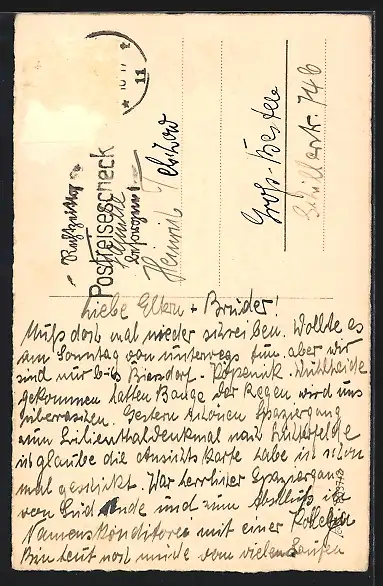 Postreisescheck
rechtzeitig
besorgen!
11
Heinrich
Schillerstr. 74b
Liebe Eltern + Bruder!
Muß doch mal wieder schreiben. Wollte es
am Sonntag von unterwegs tun. aber wir
sind nur bis Biesdorf - Köpenick. Wuhlheide
gekommen hatten Bange der Regen wird uns
überraschen. Gestern schönen Spaziergang
zum Lilienthaldenkmal nach Lichterfelde
ich glaube die Ansichtskarte habe ich schon
mal geschickt. War herrlicher Spaziergang
von Süd Ende und zum Abschluß in
Konditorei mit einer Kollegin
Bin heut noch müde vom vielen Laufen